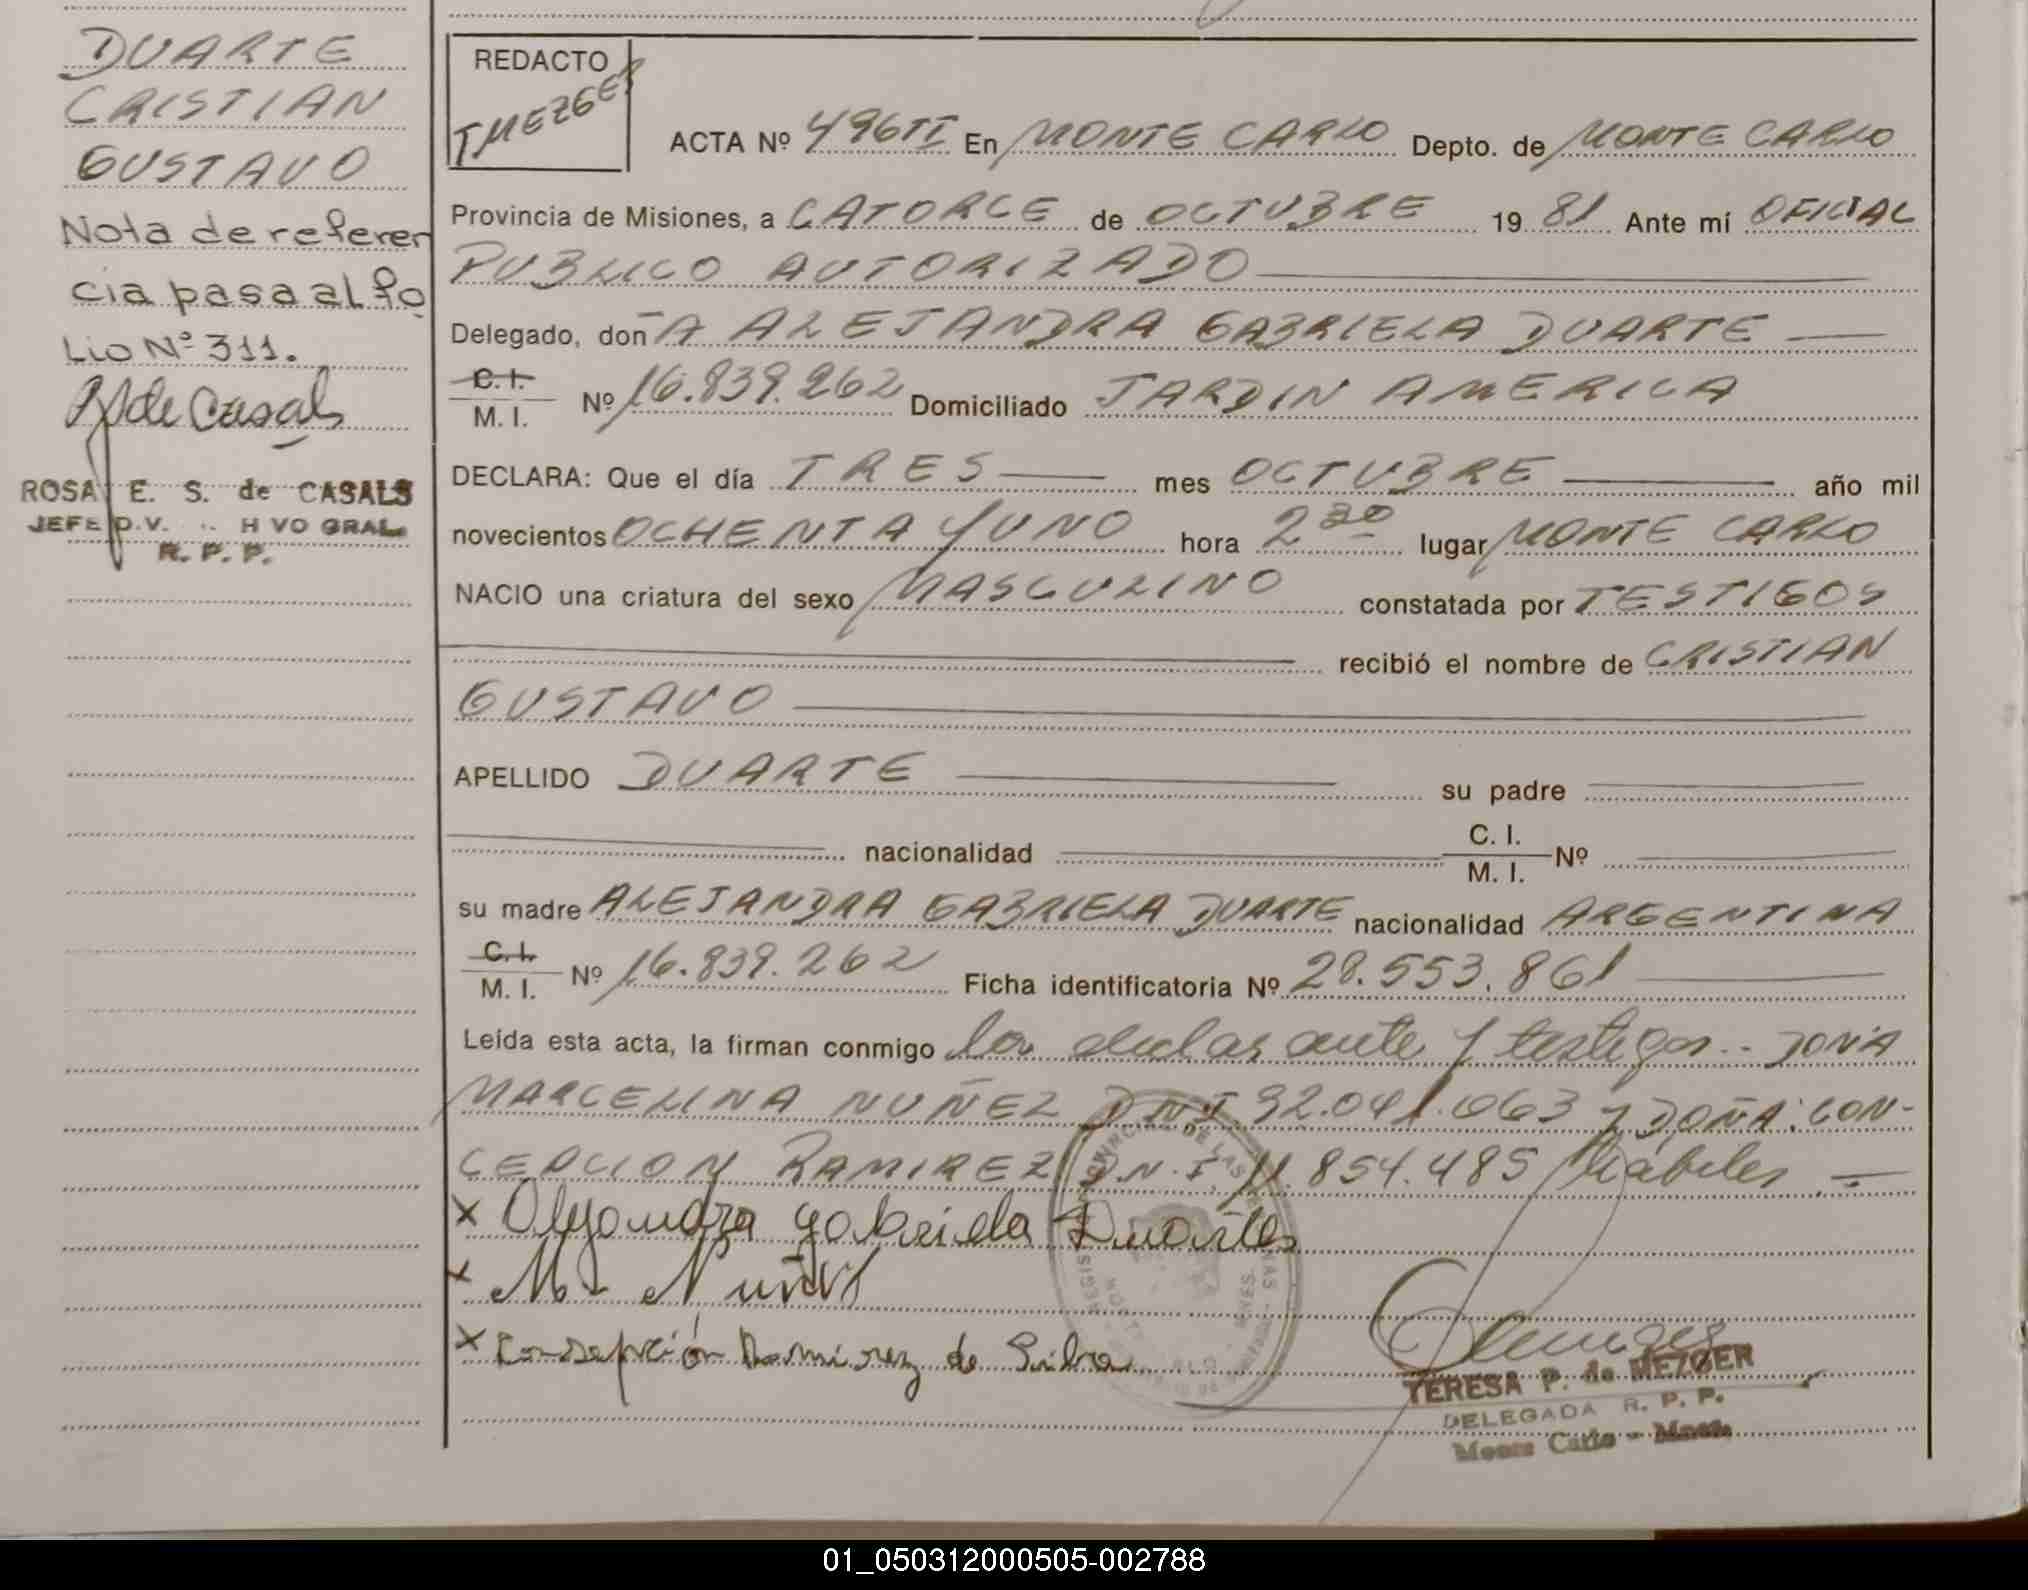 DUARTE
CRISTIAN
GUSTAVO
Nota de referen
cia pasa al fo
Lio Nº 311.
R S de Casals
ROSA E. S. de CASALS
JEFE D.V. H VO GRAL.
R. P. P.
REDACTO
TMEZGER
ACTA Nº 496TI En MONTE CARLO Depto. de MONTE CARLO
Provincia de Misiones, a CATORCE de OCTUBRE 19 81 Ante mí OFICIAL
PUBLICO AUTORIZADO
Delegado, don A ALEJANDRA GABRIELA DUARTE
C. I.
M. I. Nº 16.839.262 Domiciliado JARDIN AMERICA
DECLARA: Que el día TRES mes OCTUBRE año mil
novecientos OCHENTA Y UNO hora 2 30 lugar MONTE CARLO
NACIO una criatura del sexo MASCULINO constatada por TESTIGOS
recibió el nombre de CRISTIAN
GUSTAVO
APELLIDO DUARTE su padre
nacionalidad C. I. M. I. Nº
su madre ALEJANDRA GABRIELA DUARTE nacionalidad ARGENTINA
C. I.
M. I. Nº 16.839.262 Ficha identificatoria Nº 28.553.861
Leída esta acta, la firman conmigo la declarante y testigos.. DOÑA
MARCELINA NUÑEZ DNI 92.041.063 y DOÑA: CON-
CEPCION RAMIREZ D.N.I. 11.854.485 hábiles
x Alejandra Gabriela Duarte
x M. Nuñez
x Consepción Ramirez de Silva
TERESA P. de MEZGER
DELEGADA R. P. P.
Monte Carlo - Mnes.
01_050312000505-002788